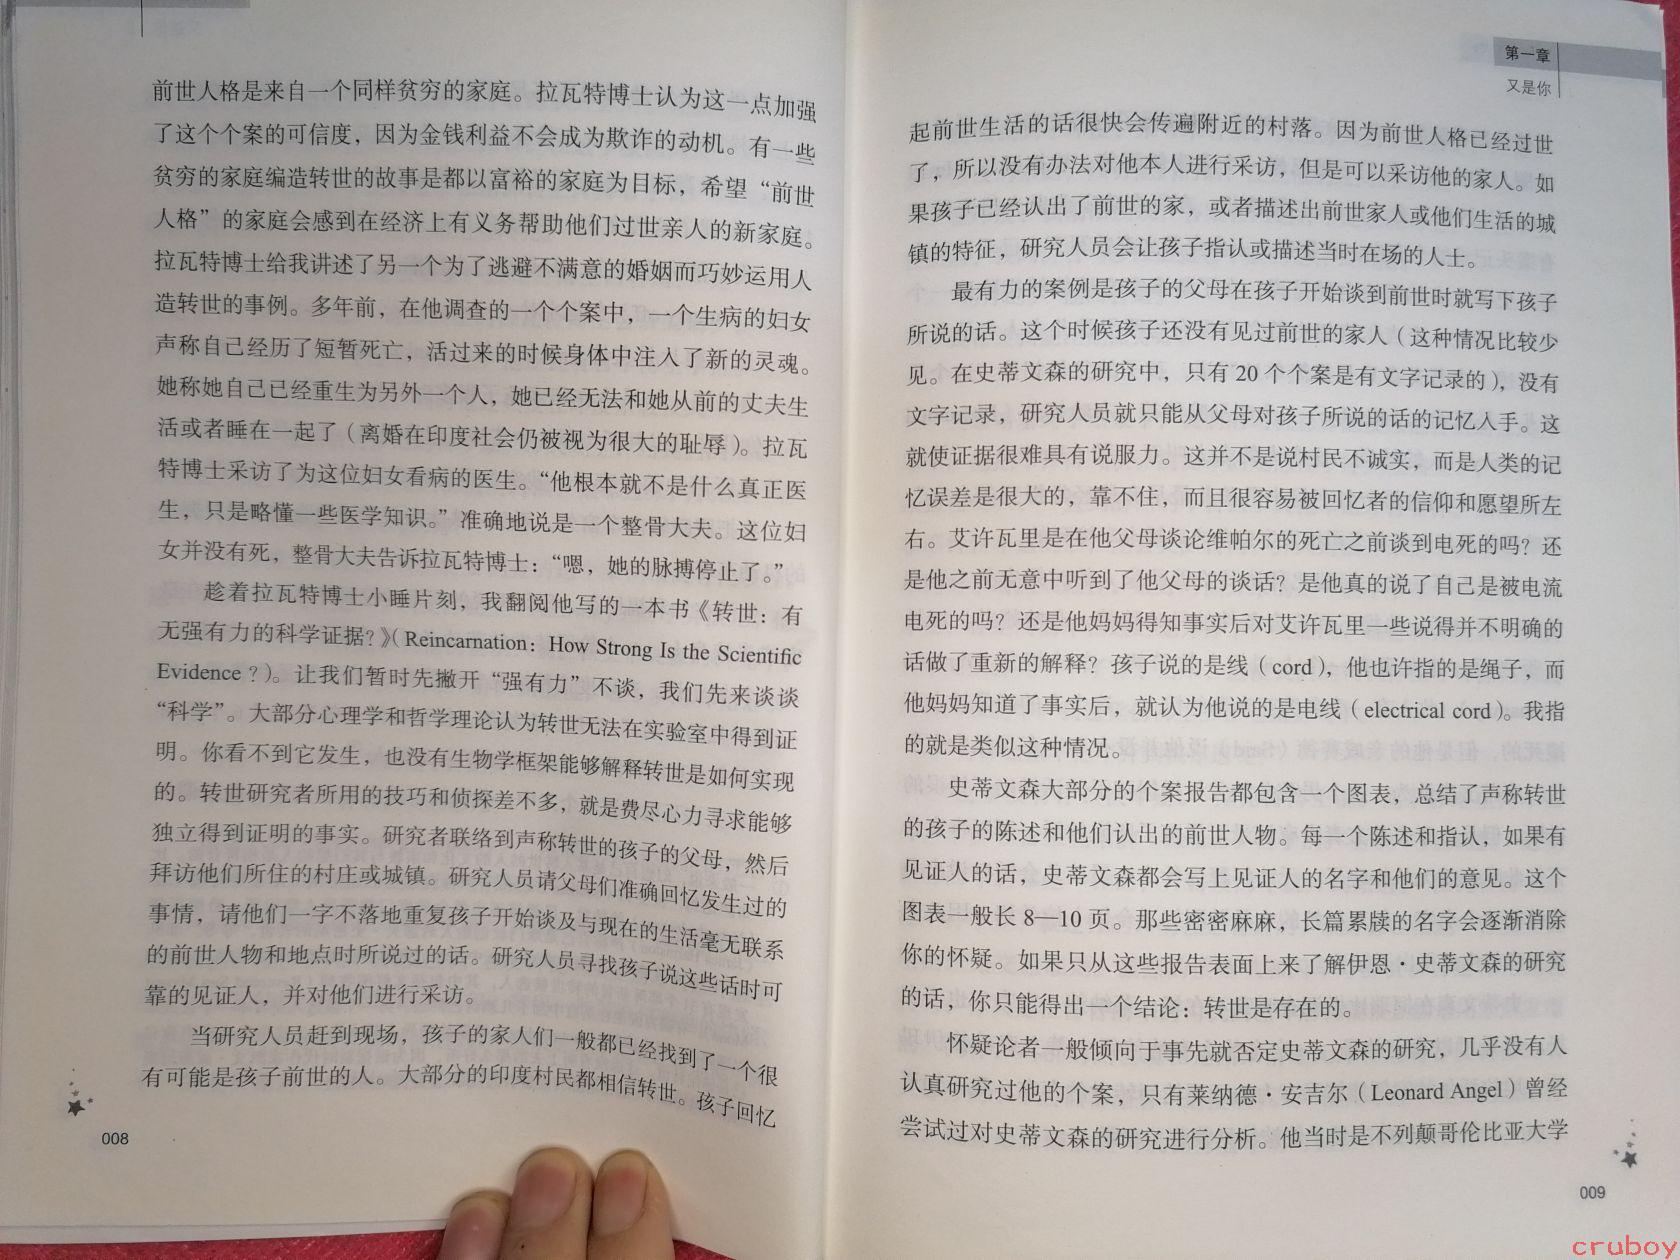 前世人格是来自一个同样贫穷的家庭。拉瓦特博士认为这一点加强
了这个个案的可信度，因为金钱利益不会成为欺诈的动机。有一些
贫穷的家庭编造转世的故事是都以富裕的家庭为目标，希望“前世
人格”的家庭会感到在经济上有义务帮助他们过世亲人的新家庭。
拉瓦特博士给我讲述了另一个为了逃避不满意的婚姻而巧妙运用人
造转世的事例。多年前，在他调查的一个个案中，一个生病的妇女
声称自己经历了短暂死亡，活过来的时候身体中注入了新的灵魂。
她称她自己已经重生为另外一个人，她已经无法和她从前的丈夫生
活或者睡在一起了（离婚在印度社会仍被视为很大的耻辱）。拉瓦
特博士采访了为这位妇女看病的医生。“他根本就不是什么真正医
生，只是略懂一些医学知识。”准确地说是一个整骨大夫。这位妇
女并没有死，整骨大夫告诉拉瓦特博士：“嗯，她的脉搏停止了。”
趁着拉瓦特博士小睡片刻，我翻阅他写的一本书《转世：有
无强有力的科学证据？》（Reincarnation：How Strong Is the Scientific
Evidence？）。让我们暂时先撇开“强有力”不谈，我们先来谈谈
“科学”。大部分心理学和哲学理论认为转世无法在实验室中得到证
明。你看不到它发生，也没有生物学框架能够解释转世是如何实现
的。转世研究者所用的技巧和侦探差不多，就是费尽心力寻求能够
独立得到证明的事实。研究者联络到声称转世的孩子的父母，然后
拜访他们所住的村庄或城镇。研究人员请父母们准确回忆发生过的
事情，请他们一字不落地重复孩子开始谈及与现在的生活毫无联系
的前世人物和地点时所说过的话。研究人员寻找孩子说这些话时可
靠的见证人，并对他们进行采访。
当研究人员赶到现场，孩子的家人们一般都已经找到了一个很
有可能是孩子前世的人。大部分的印度村民都相信转世。孩子回忆
008
第一章
又是你
起前世生活的话很快会传遍附近的村落。因为前世人格已经过世
了，所以没有办法对他本人进行采访，但是可以采访他的家人。如
果孩子已经认出了前世的家，或者描述出前世家人或他们生活的城
镇的特征，研究人员会让孩子指认或描述当时在场的人士。
最有力的案例是孩子的父母在孩子开始谈到前世时就写下孩子
所说的话。这个时候孩子还没有见过前世的家人（这种情况比较少
见。在史蒂文森的研究中，只有 20 个个案是有文字记录的），没有
文字记录，研究人员就只能从父母对孩子所说的话的记忆入手。这
就使证据很难具有说服力。这并不是说村民不诚实，而是人类的记
忆误差是很大的，靠不住，而且很容易被回忆者的信仰和愿望所左
右。艾许瓦里是在他父母谈论维帕尔的死亡之前谈到电死的吗？还
是他之前无意中听到了他父母的谈话？是他真的说了自己是被电流
电死的吗？还是他妈妈得知事实后对艾许瓦里一些说得并不明确的
话做了重新的解释？孩子说的是线（cord），他也许指的是绳子，而
他妈妈知道了事实后，就认为他说的是电线（electrical cord）。我指
的就是类似这种情况。
史蒂文森大部分的个案报告都包含一个图表，总结了声称转世
的孩子的陈述和他们认出的前世人物。每一个陈述和指认，如果有
见证人的话，史蒂文森都会写上见证人的名字和他们的意见。这个
图表一般长 8—10 页。那些密密麻麻，长篇累牍的名字会逐渐消除
你的怀疑。如果只从这些报告表面上来了解伊恩·史蒂文森的研究
的话，你只能得出一个结论：转世是存在的。
怀疑论者一般倾向于事先就否定史蒂文森的研究，几乎没有人
认真研究过他的个案，只有莱纳德·安吉尔（Leonard Angel）曾经
尝试过对史蒂文森的研究进行分析。他当时是不列颠哥伦比亚大学
009
cruboy